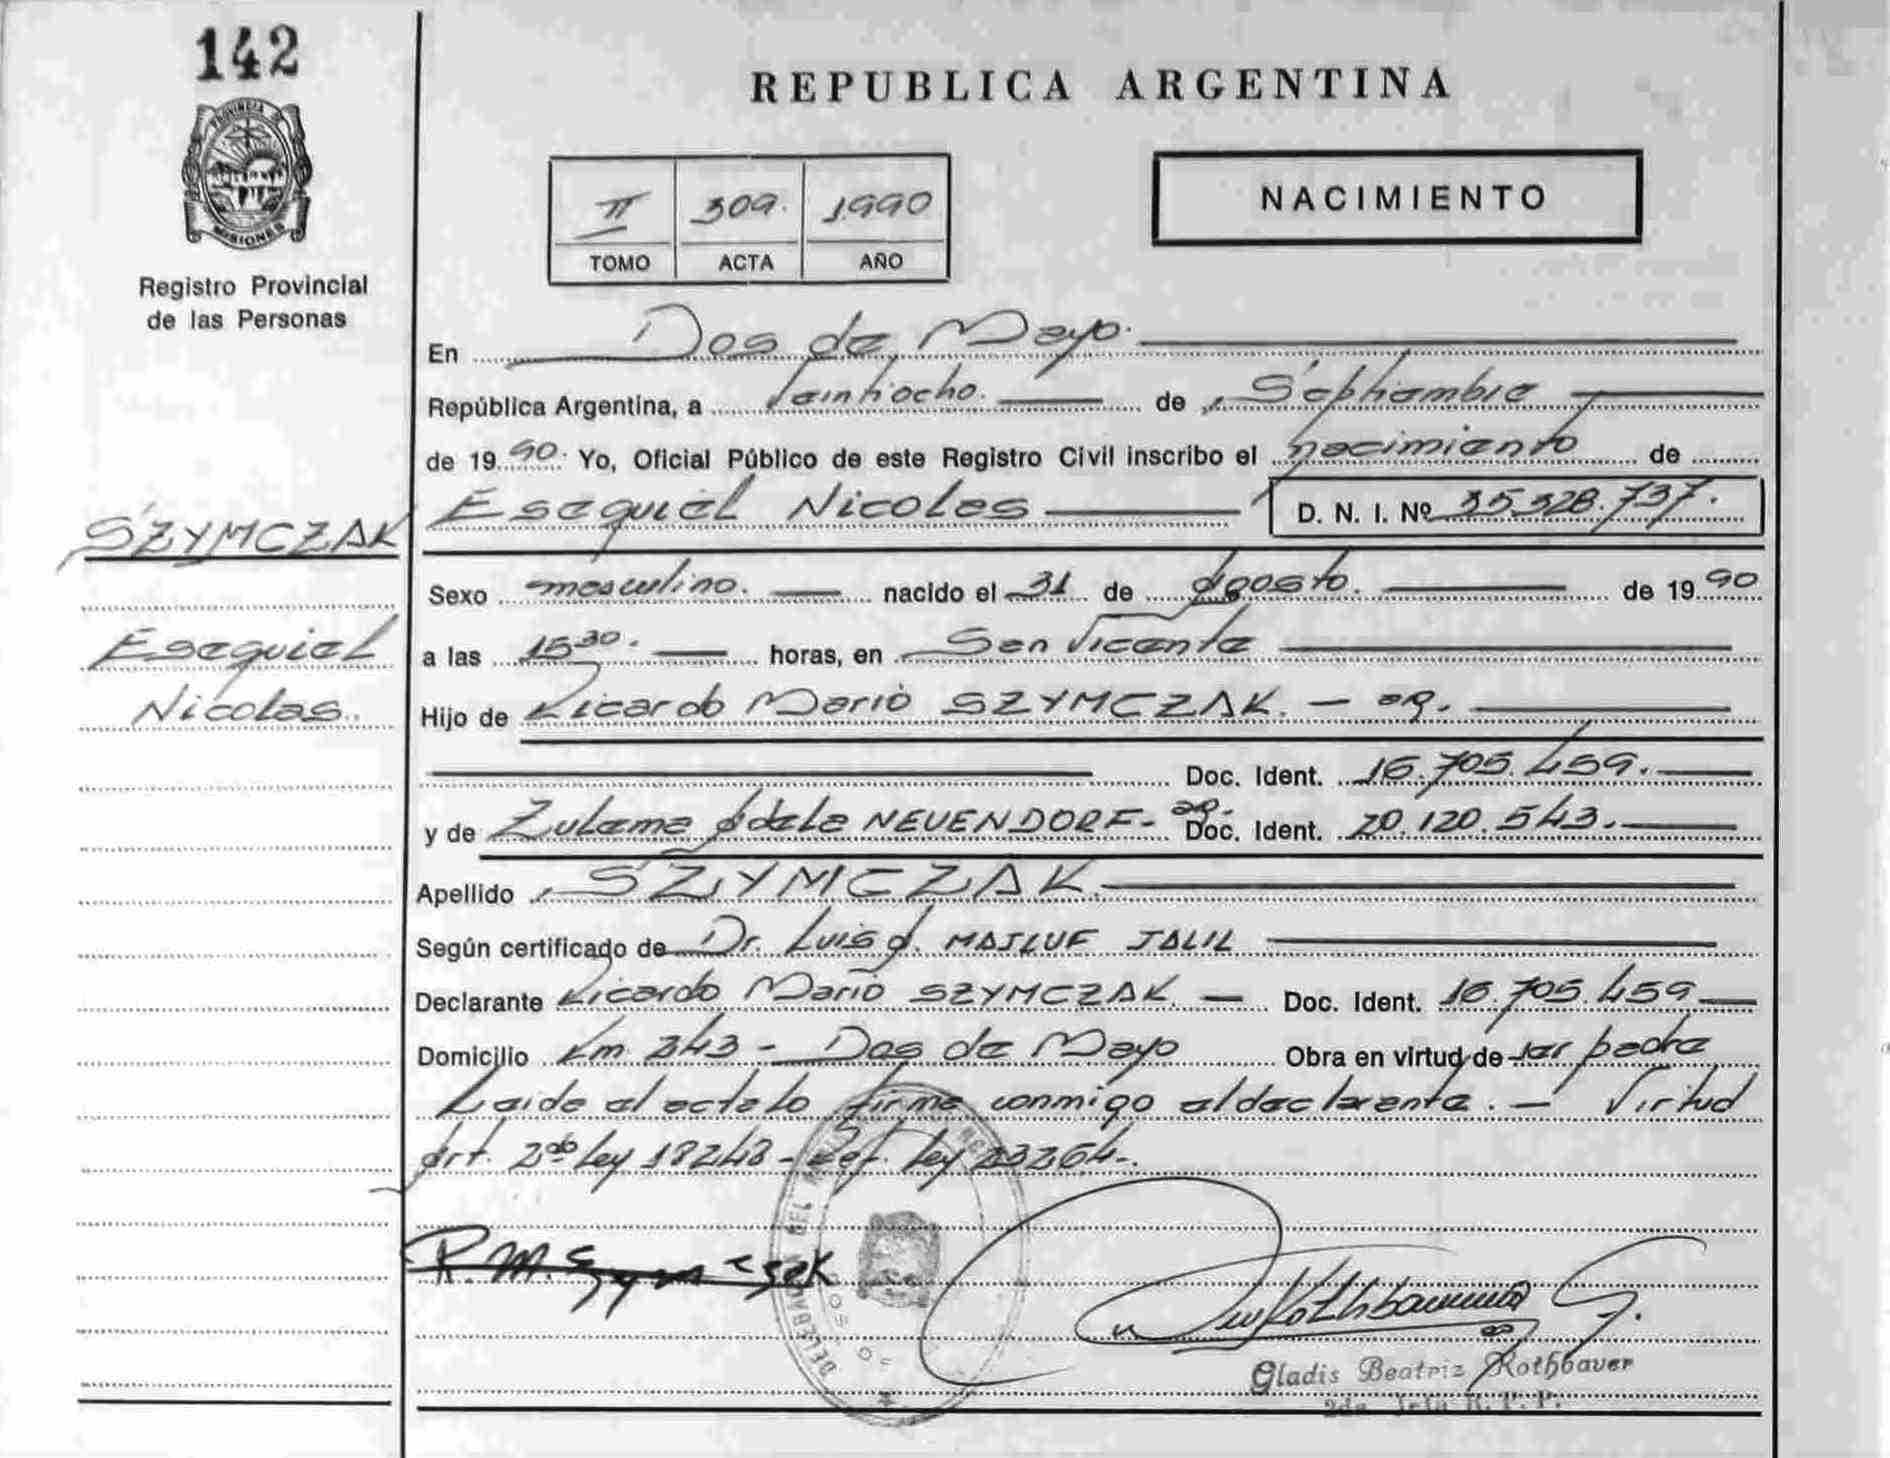 142
PROVINCIA DE
MISIONES
Registro Provincial
de las Personas
REPUBLICA ARGENTINA
II 309. 1990
TOMO ACTA AÑO
NACIMIENTO
En Dos de Mayo.
República Argentina, a Veintiocho. de Septiembre
de 1990. Yo, Oficial Público de este Registro Civil inscribo el nacimiento de
SZYMCZAK
Esequiel Nicolas D. N. I. Nº 35.328.737.
Sexo masculino. nacido el 31 de Agosto. de 1990
Esequiel
a las 15 30. horas, en San Vicente
Nicolas.
Hijo de Ricardo Mario SZYMCZAK. - ar.
Doc. Ident. 16.705.459.
y de Zulema Adela NEUENDORF - ar. Doc. Ident. 20.120.543.
Apellido SZYMCZAK.
Según certificado de Dr. Luis A. MAJLUF JALIL
Declarante Ricardo Mario SZYMCZAK. Doc. Ident. 16.705.459
Domicilio Km 243 - Dos de Mayo Obra en virtud de ser padre
Leide el acta lo firma conmigo el declarante. - Virtud
Art. 2do Ley 18248 - Ref. Ley 23264-.
R.M. Szymczak
DELEGACION DEL
Gladis Beatriz Rothbauer
2da. Jefa R. P. P.